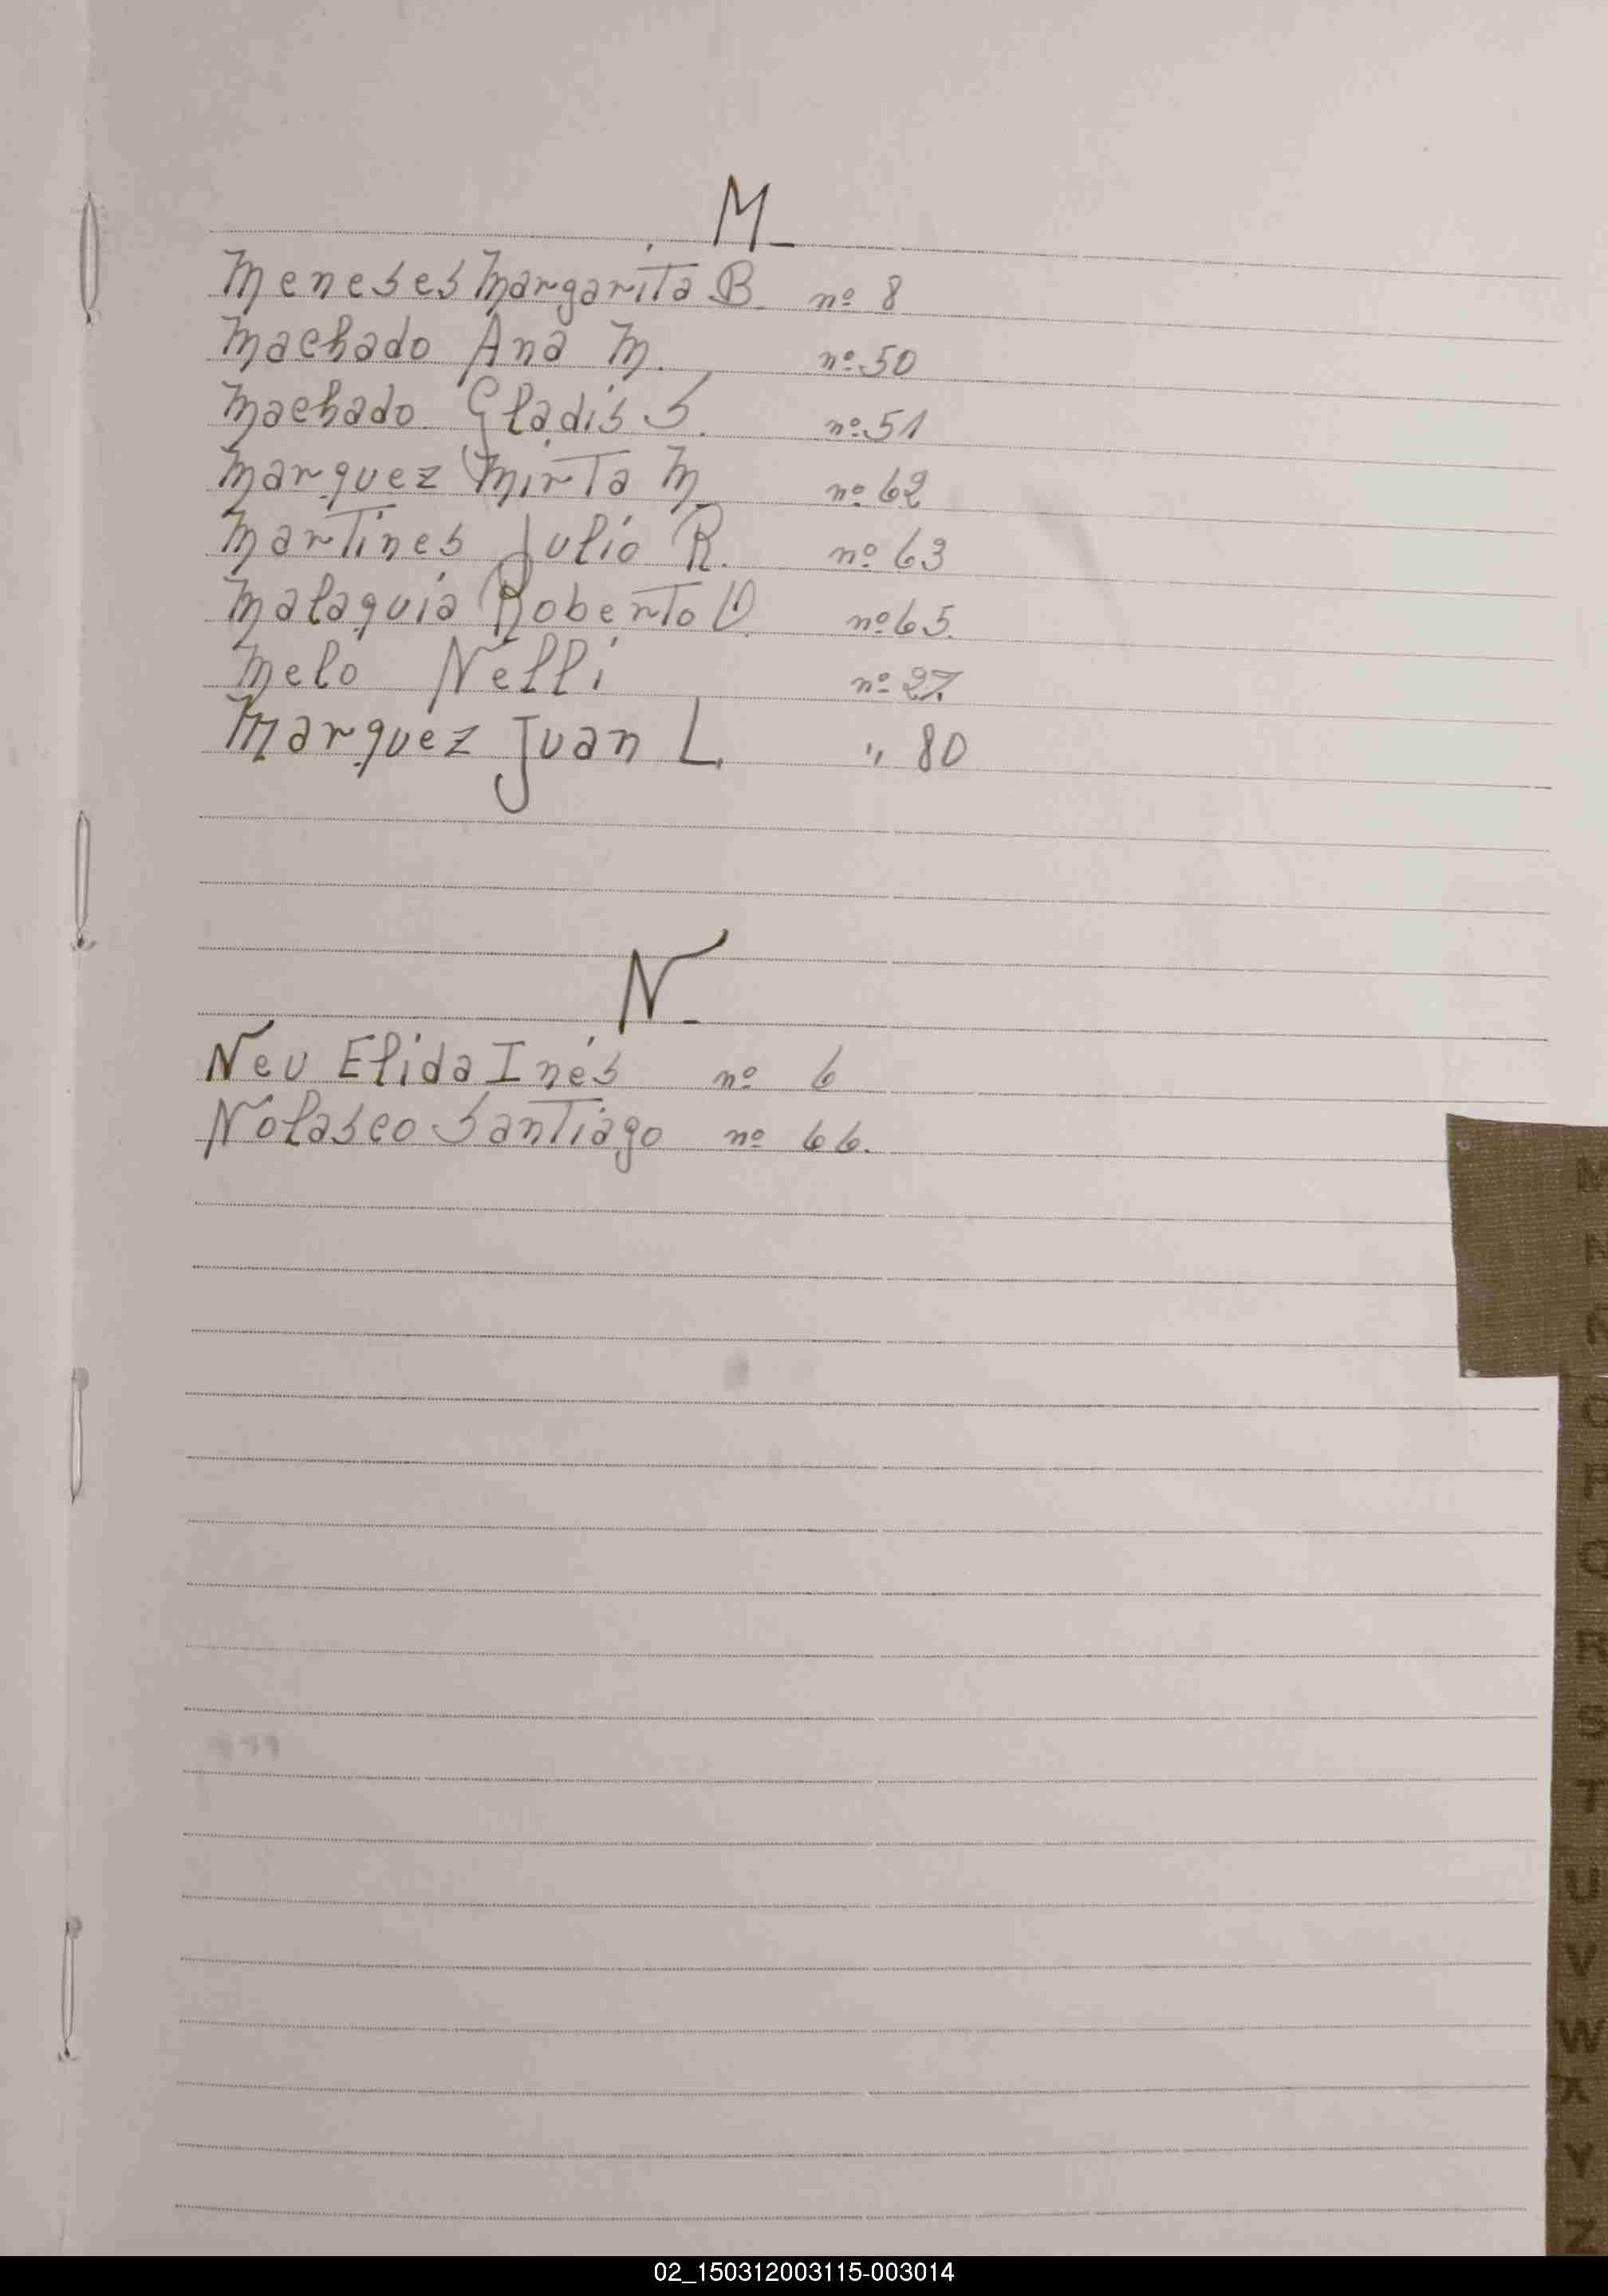 M
Meneses Margarita B. nº 8
Machado Ana M. nº 50
Machado Gladis S. nº 51
Marquez Mirta M. nº 62
Martines Julio R. nº 63
Malaquia Roberto D. nº 65.
Melo Nelli nº 27.
Marquez Juan L. " 80
N
Neu Elida Inés nº 6
Nolasco Santiago nº 66.
M
N
O
P
Q
R
S
T
U
V
W
X
Y
Z
02_150312003115-003014